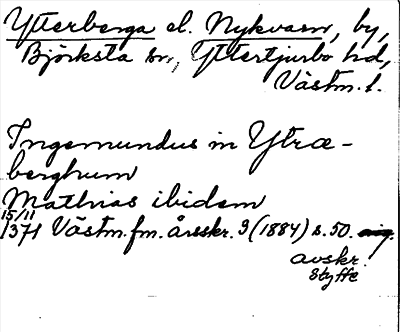 Ytterberga el. Nykvarn, by,
Björksta sn, Yttertjurbo hd,
Västm. l.
Ingemundus in Ytræ-
berghum
Mathias ibidem
15/11
1371 Västm. fm. årsskr. 3 (1884) s. 50.
avskr.
Styffe